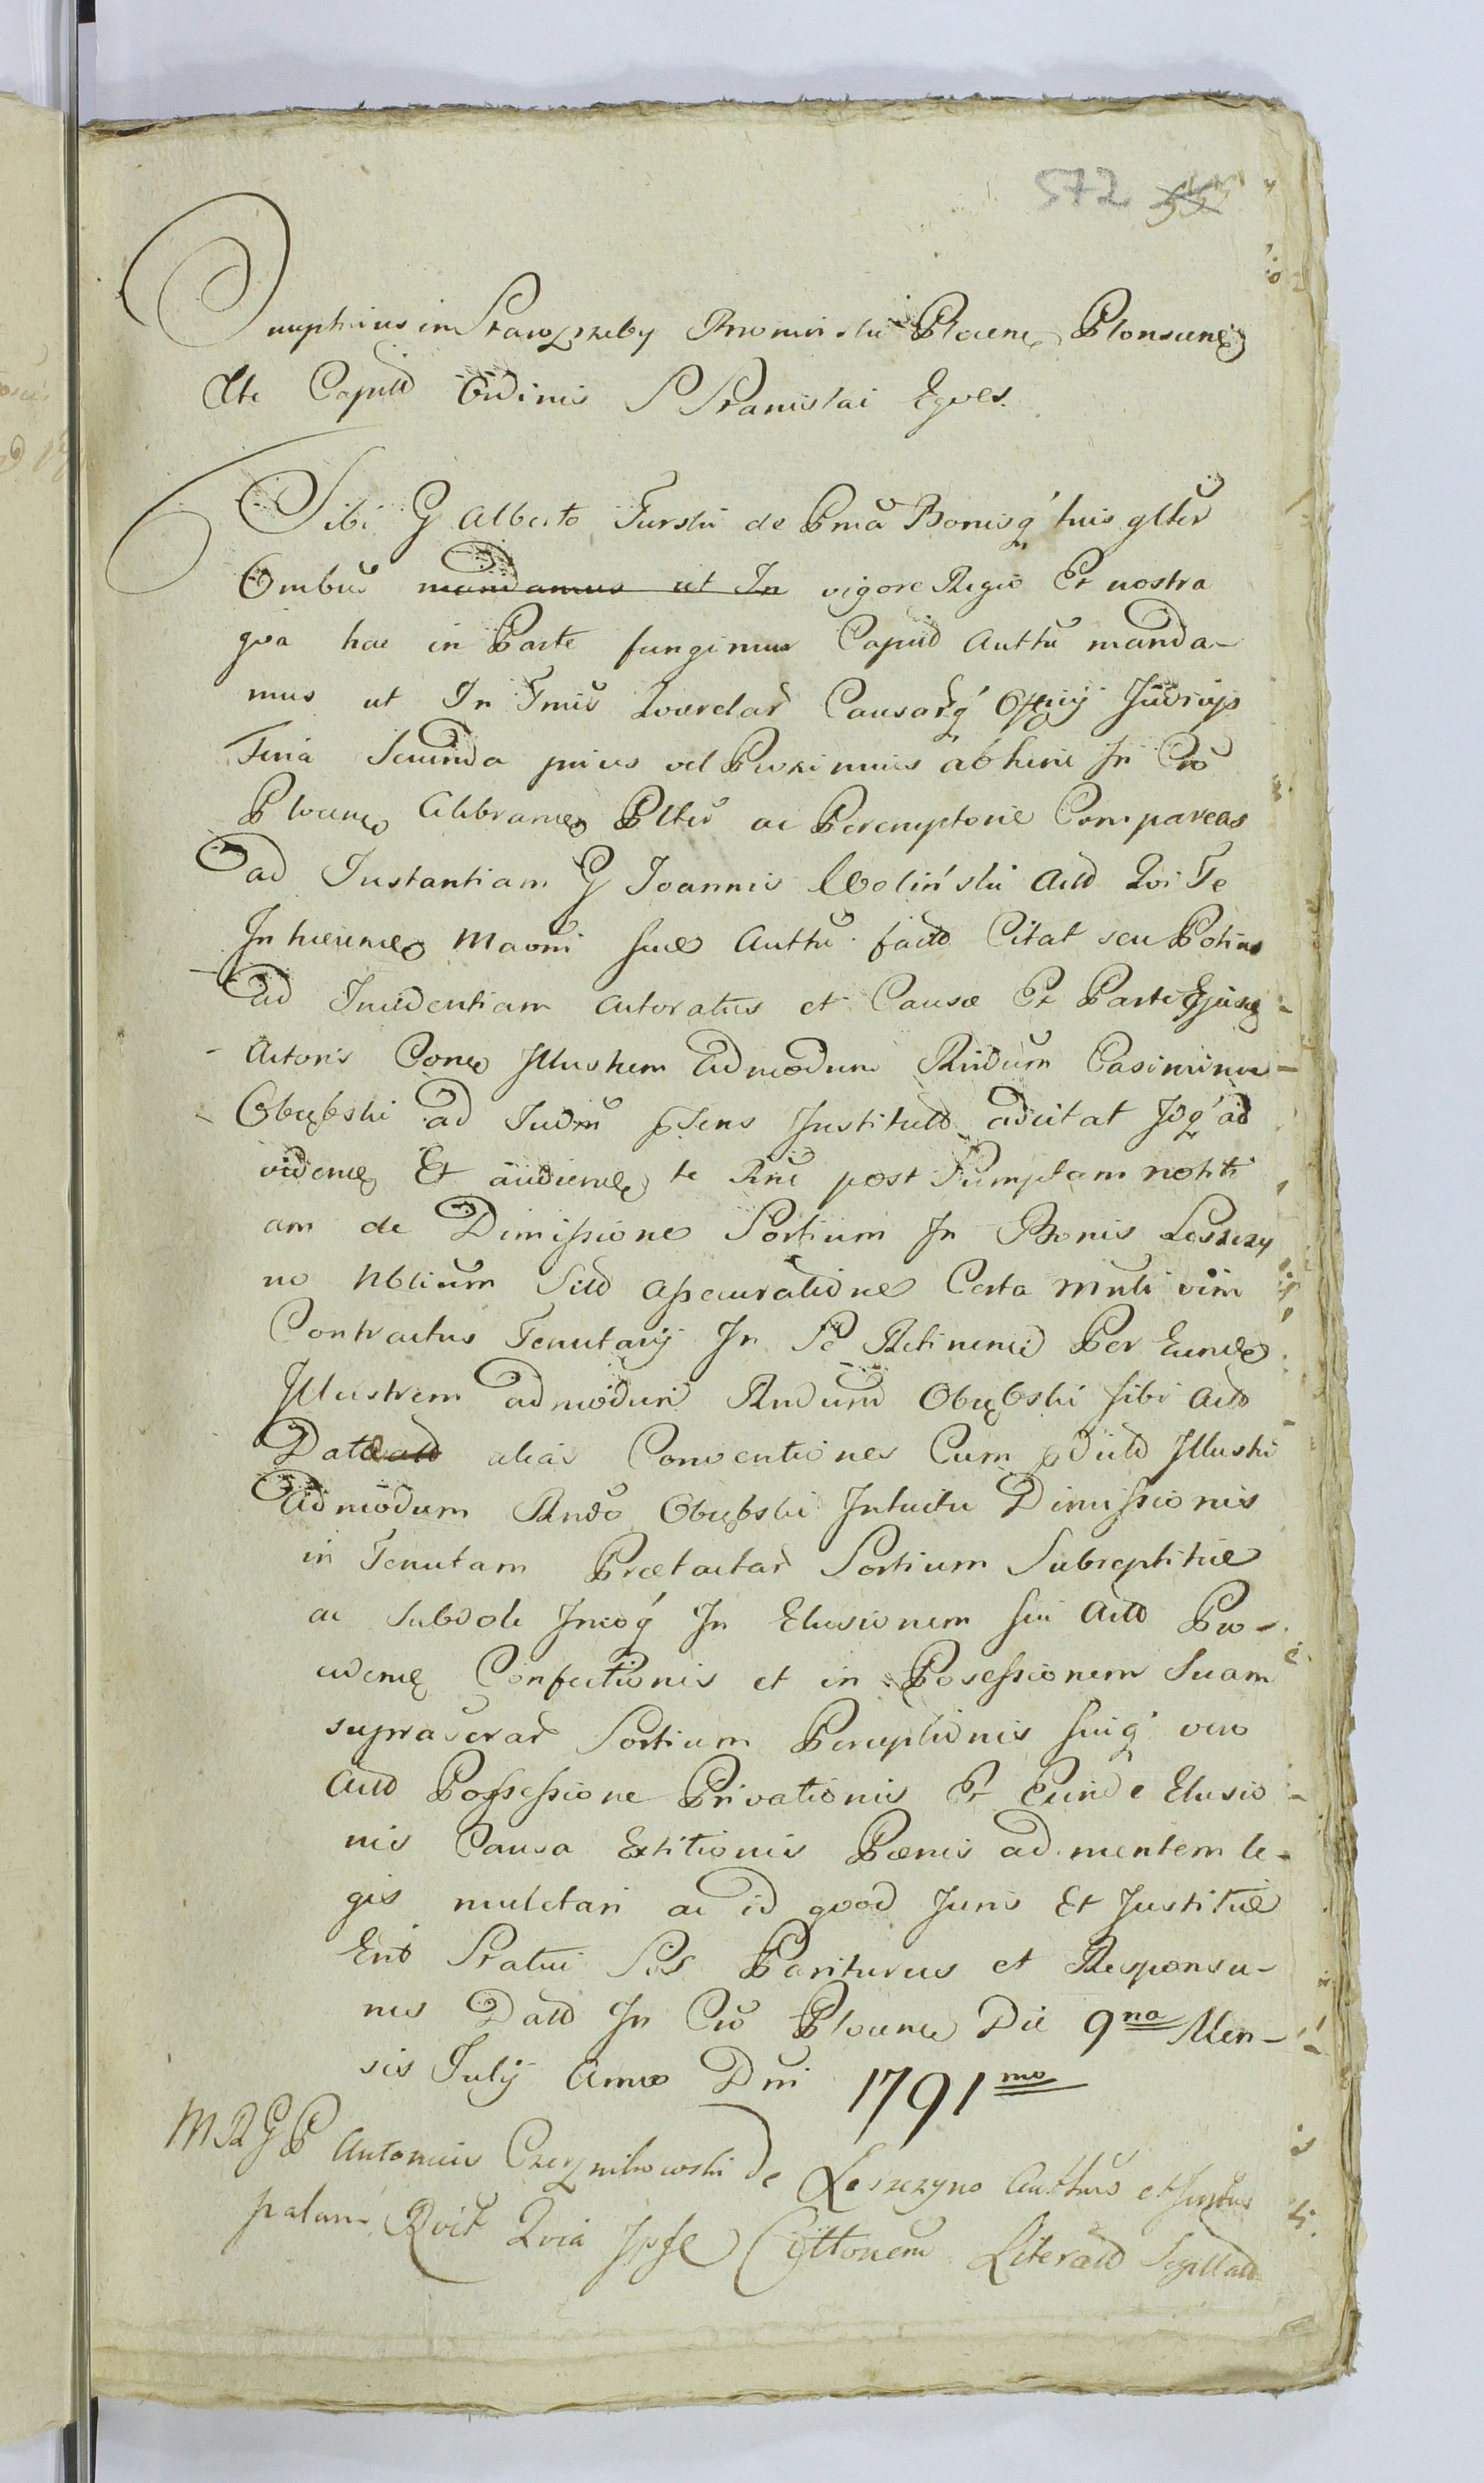 572 555
Onuphrius in Stawozreby Bromirski Plocen Plonscen
Etc Captlis Ordinis S Stanislai Eques.
Tibi G Alberto Turski de Pma Bonisq tuis glter
Ombus mandamus ut In vigore Regio Et nostra
qva hac in Parte fungimur Capitli Auttu manda-
mus ut In Tmis Qverelar Causarq Officij Judicij
Feria Secunda prius vel Proximius abhinc In Cro
Plocen Celebran Plter ac Peremptorie Compareas
ad Instantiam G Joannis Woliński Actis Qvi Te
In haerendo Maoni suae Auttu facto Citat seu Potius
ad Incidentiam Actoratus et Causae Ex Parte Ejusd-
Actoris Contra Illustrem Admodum Rndum Casimirum-
Obrębski ad Judm psens Institutis adcitat Idq ad
vidend Et audiend te Rne post Sumptam notiti
am de Dimissione Sortium In Bonis Leszczy
no Nblium Sitis Assecuratione Certa Mnti vim
Contractus Tenutarij In Se Retinenti Per Eundem
Illustrem admodum Rndum Obrębski sibi Actis
Data alias Conventiones Cum pdicto Illustri
Admodum Rndo Obrębski Intuitu Dimissionis
in Tenutam Praetactar Sortium Subreptitie
ac Subdole Imoq In Elusionem sui Actis Pro-
cidend Confectionis et in Posessionem Suam
suprascrar Sortium Perceptionis suiq vero
Actis Possessione Privationis Et Exinde Elusio-
nis Causa Extitionis Paenis ad mentem le-
gis mulctari ac id qvod Juris Et Justitiae
Erit Statui Sis Pariturus et Responsu-
rus Datis In Cro Plocen Die 9na Men-
sis Julij Anno Dni 1791mo
MRGP Antonius Czerznikowski De Leszczyno Autthus et Juratus
palam Rvit Qvia Ipse Cittonem Literatis Sigillatis